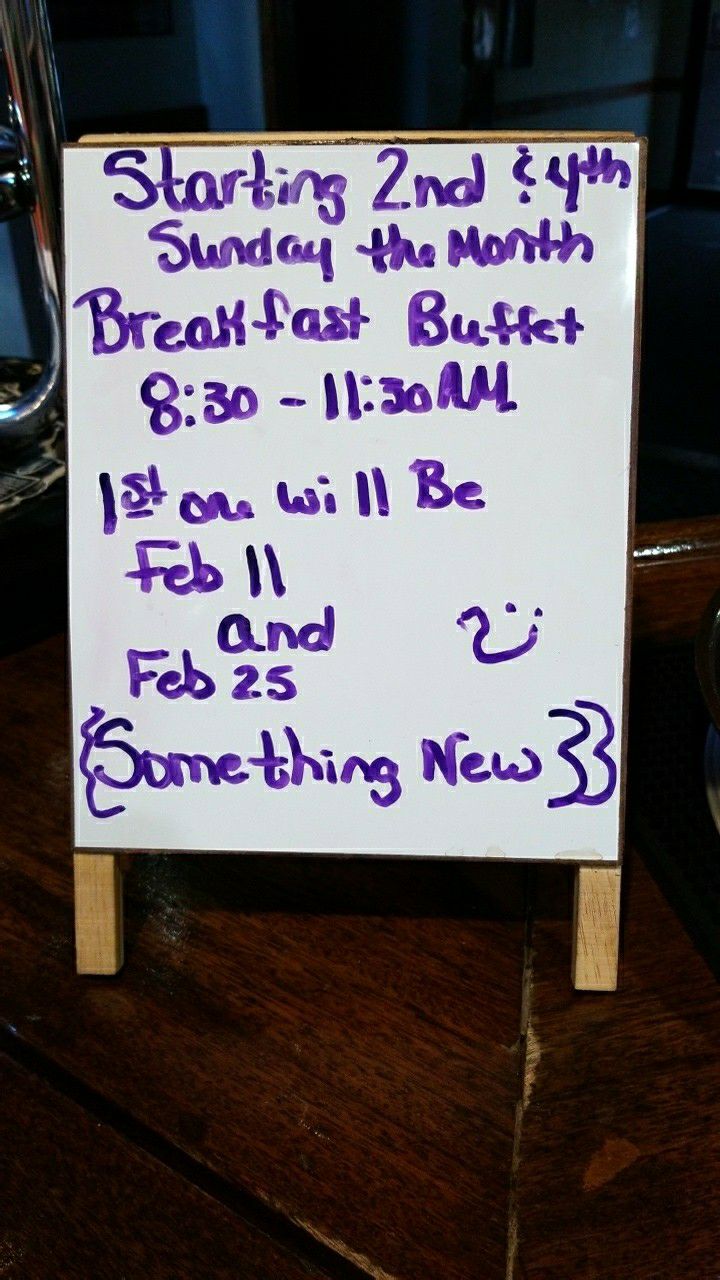 Starting 2nd & 4th
Sunday the Month
Breakfast Buffet
8:30 - 11:30 AM
1st one will Be
Feb 11
and
Feb 25
{Something New}}